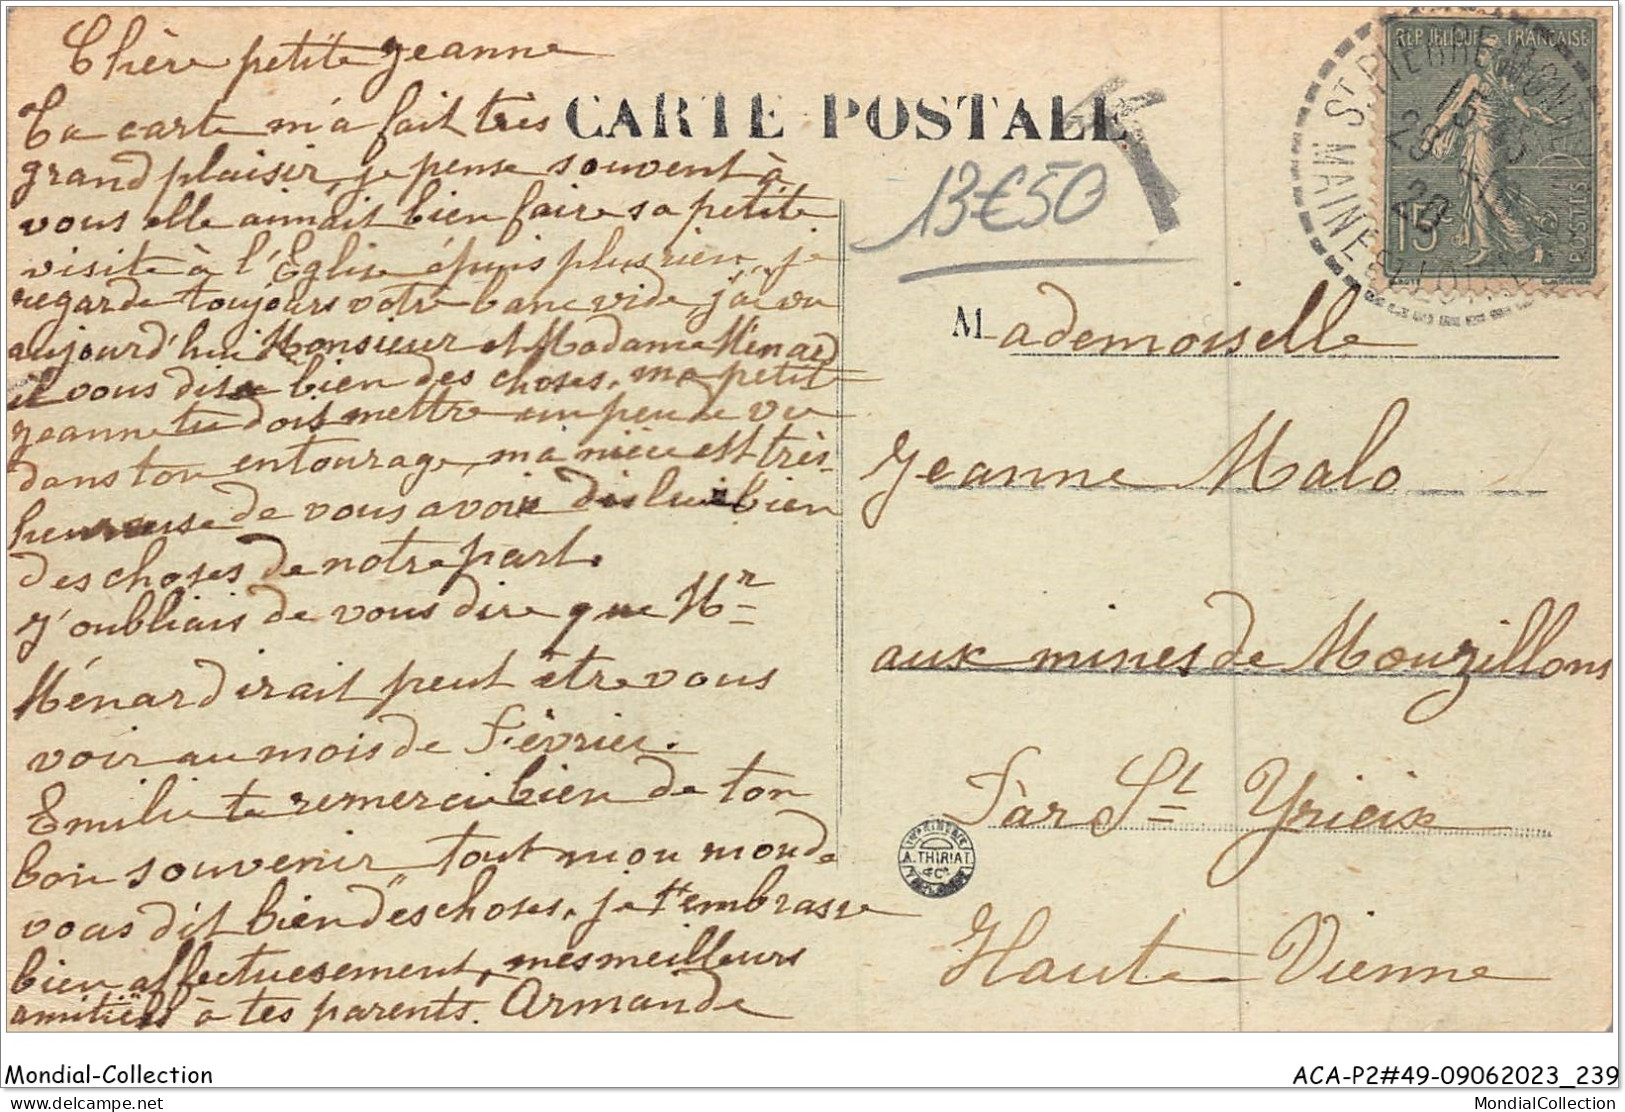 Chère petite Jeanne
Ta carte m'a fait très
grand plaisir, je pense souvent à
vous elle aimait bien faire sa petite
visite à l'Eglise épuis plus rien, je
regarde toujours votre banc vide, j'ai vu
aujourd'hui Monsieur et Madame Ménard
il vous dise bien des choses, ma petite
Jeanne tu dois mettre un peu de vie
dans ton entourage, ma nièce est très
heureuse de vous avoir dis lui bien
des choses de notre part.
J'oubliais de vous dire que Mr
Ménard irait peut être vous
voir au mois de Février.
Emilie te remercie bien de ton
bon souvenir tout mon monde
vous dit bien des choses, je t'embrasse
bien affectueusement, mes meilleurs
amitiés à tes parents. Armande
CARTE POSTALE
13€50
REPUBLIQUE FRANÇAISE
15c
POSTES
ST PIERRE MONTLIMART
MAINE-ET-LOIRE
15
29
20
Mademoiselle
Jeanne Malo
aux mines de Mouzillons
Par St Yrieix
Haute Vienne
IMPRIMERIE
A. THIRIAT
& Cie
Mondial-Collection
ACA-P2#49-09062023_239
delcampe.net
MondialCollection